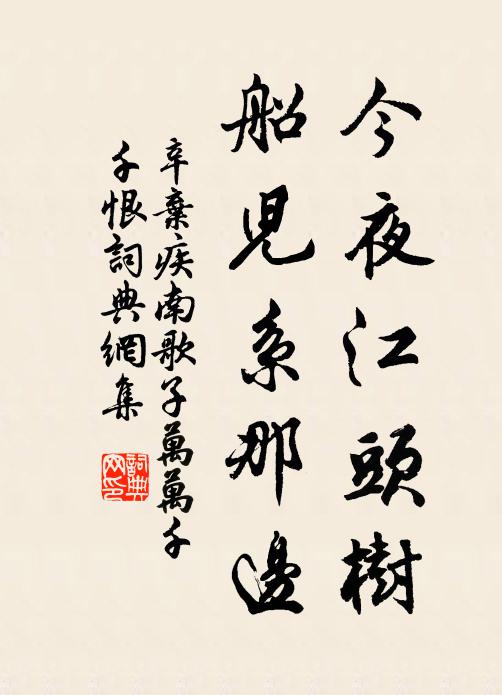 今夜江頭樹
船兒系那邊
辛棄疾南歌子萬萬千
千恨詞典網集
詞典
网印